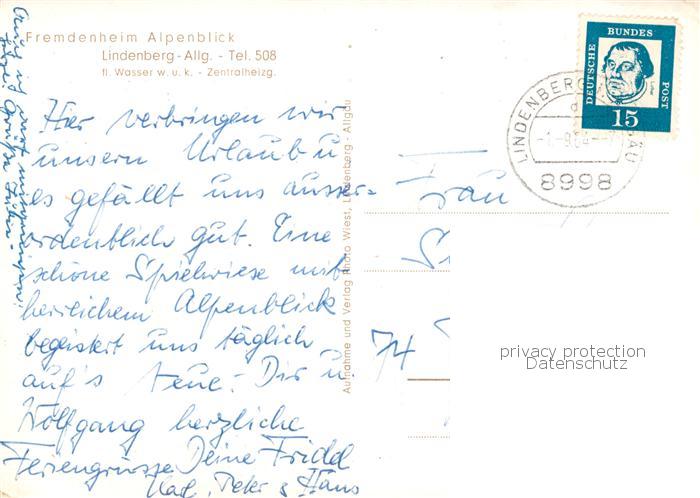 Fremdenheim Alpenblick
Lindenberg-Allg. - Tel. 508
fl. Wasser w. u. k. - Zentralheizg.
Hier verbringen wir
unsern Urlaub u.
es gefällt uns ausser-
ordentlich gut. Eine
schöne Spielwiese mit
herrlichem Alpenblick
begeistert uns täglich
auf's Neue. Dir u.
Wolfgang herzliche
Feriengrüsse Deine Fridl
Karl, Peter & Hans
Auch ich
Grüße
Aufnahme und Verlag Photo Wiest, Lindenberg-Allgäu
DEUTSCHE BUNDES POST
15
LINDENBERG
-1.-9.64
8998
Frau
74
privacy protection
Datenschutz